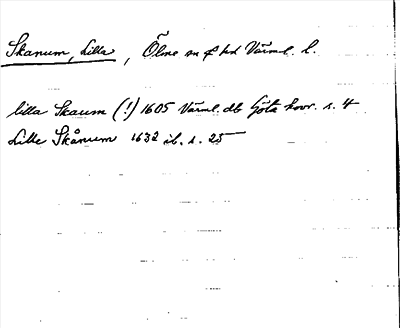 Skanum, Lilla, Ölme sn o hd Värml. l.
lilla Skaum (!) 1605 Värml. db Göta hovr. s. 4
Lille Skånum 1632 ib. s. 25